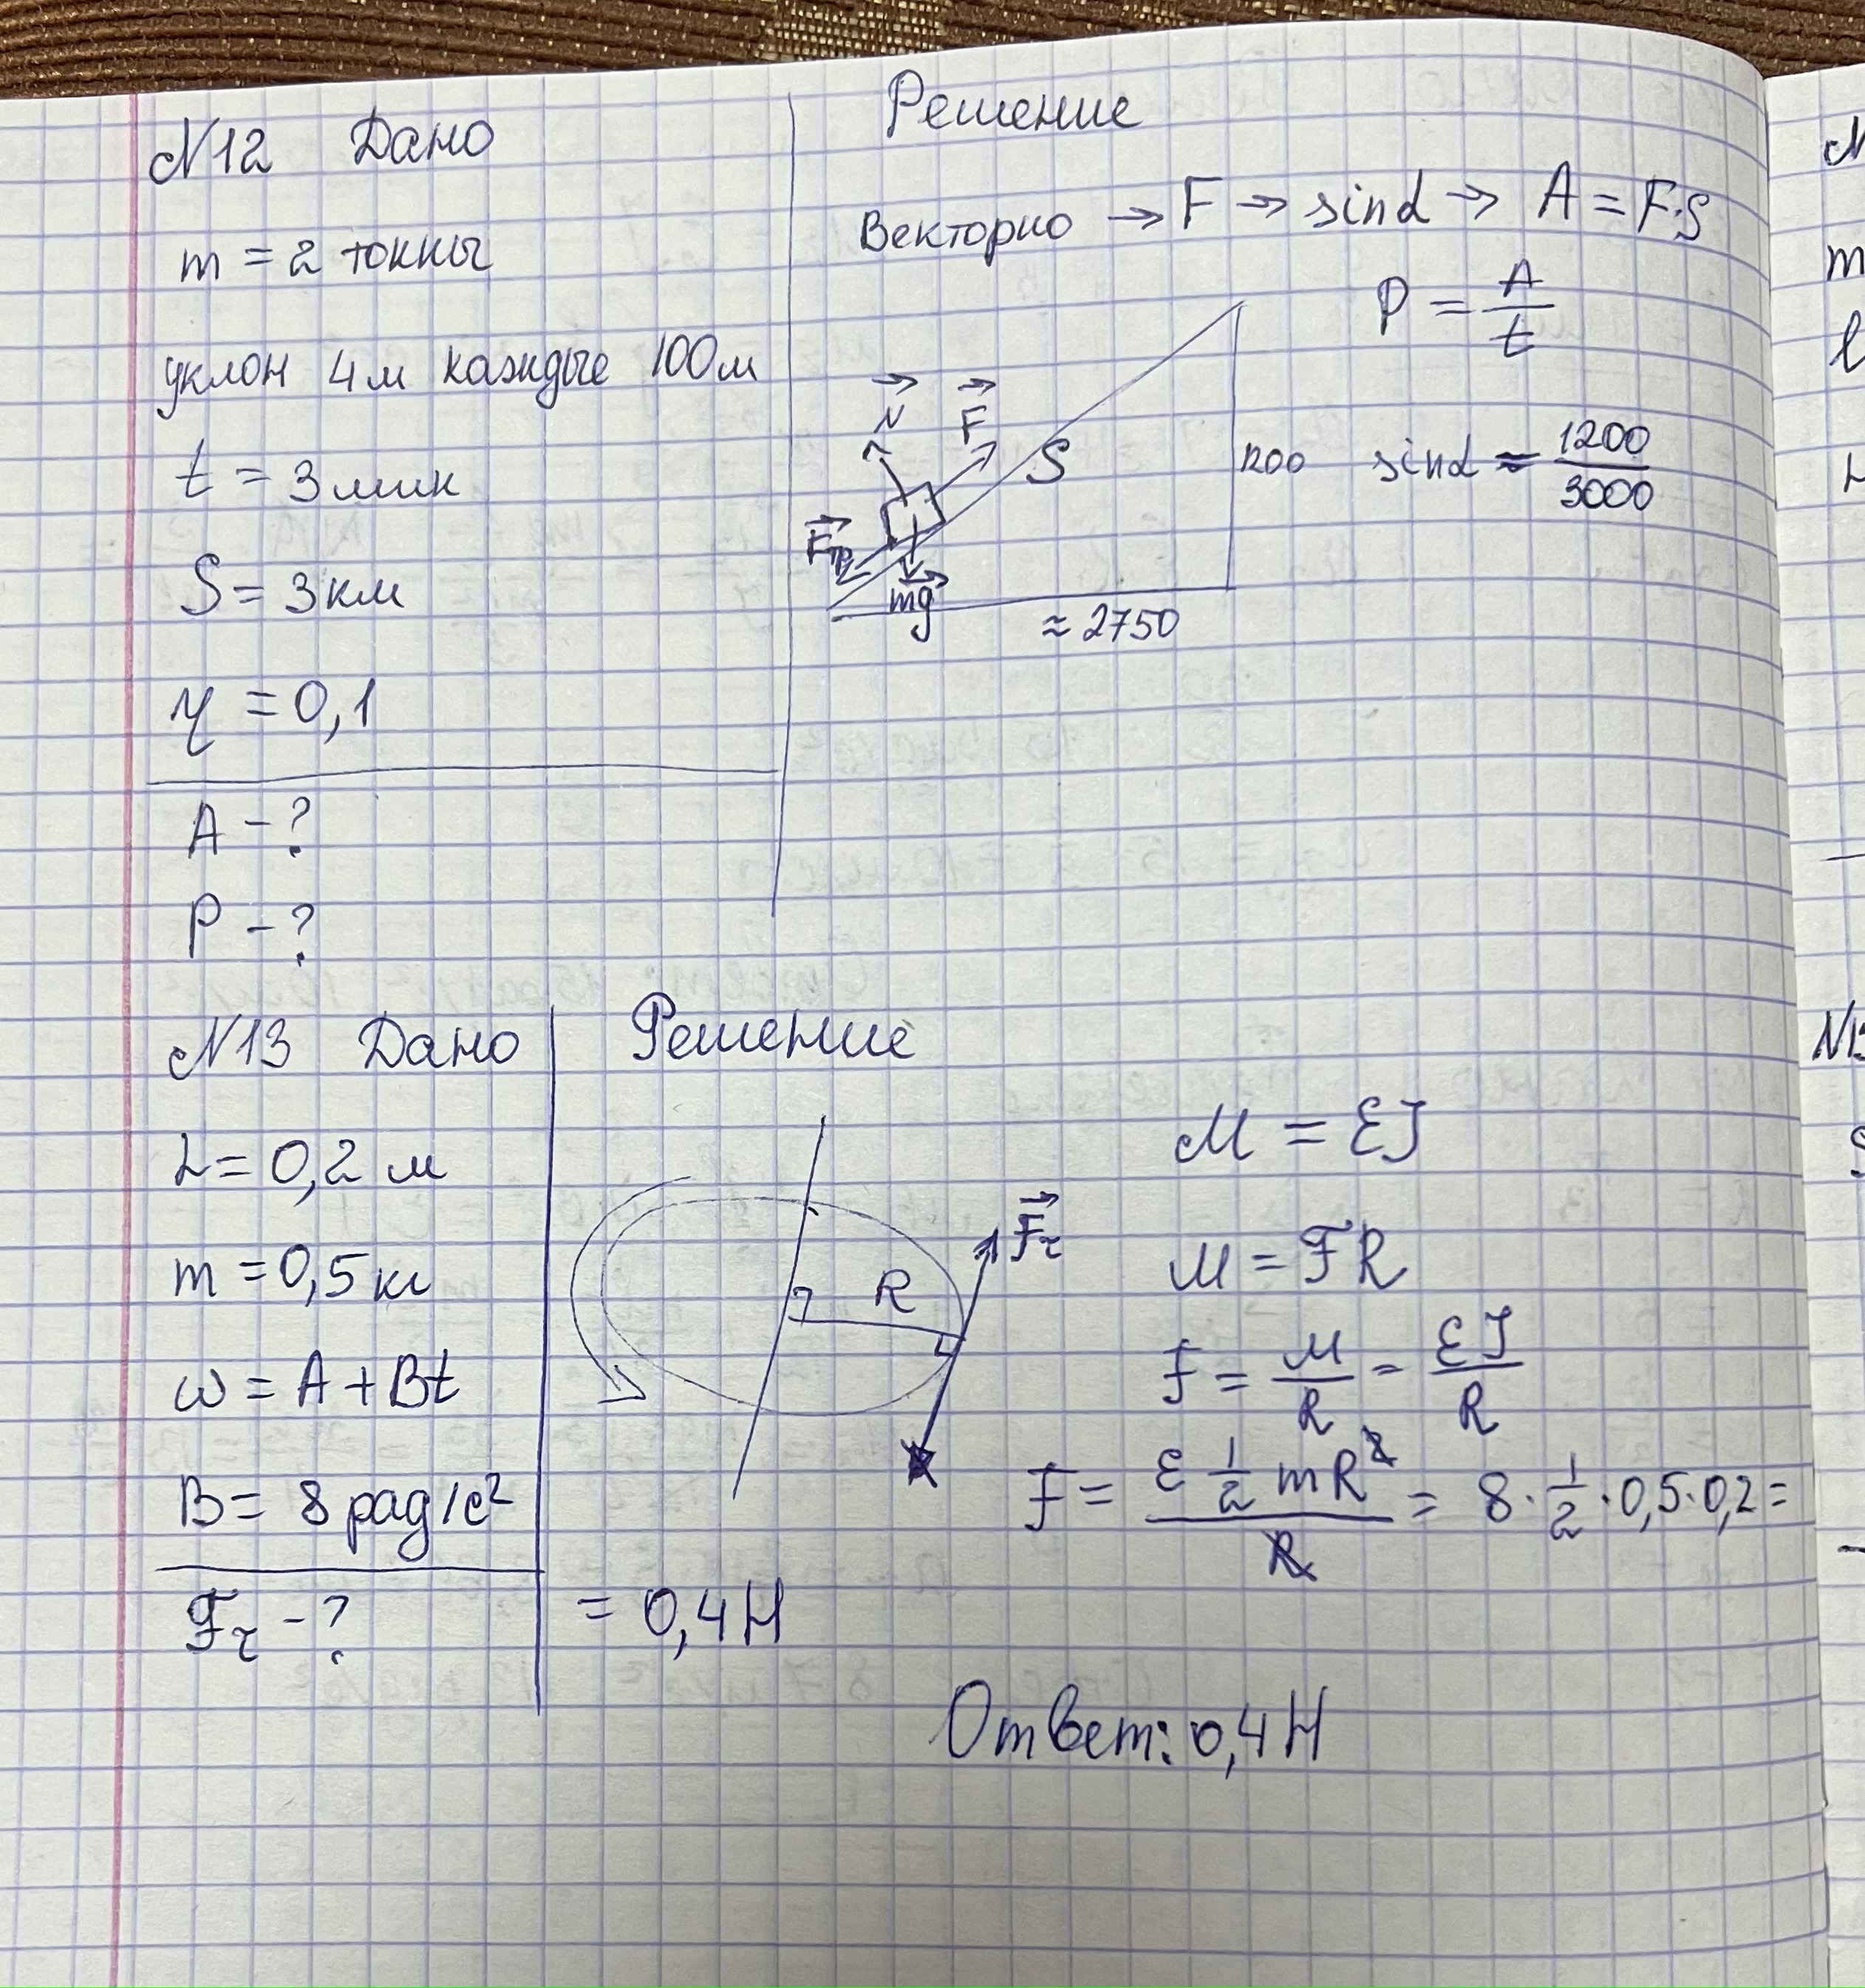 N12 Дано
m = 2 тонны
уклон 4м каждые 100м
t = 3 мин
S = 3 км
η = 0,1
A - ?
P - ?
Решение
Векторно → F → sinα → A = F·S
P = A/t
N F S
Fтр mg
1200
≈ 2750
sinα ≈ 1200/3000
N13 Дано
L = 0,2 м
m = 0,5 кг
ω = A + Bt
B = 8 рад/с²
Fτ - ?
Решение
R Fτ
M = εJ
M = FR
F = M/R = εJ/R
F = ε 1/2 mR²/R = 8 · 1/2 · 0,5 · 0,2 =
= 0,4 Н
Ответ: 0,4 Н